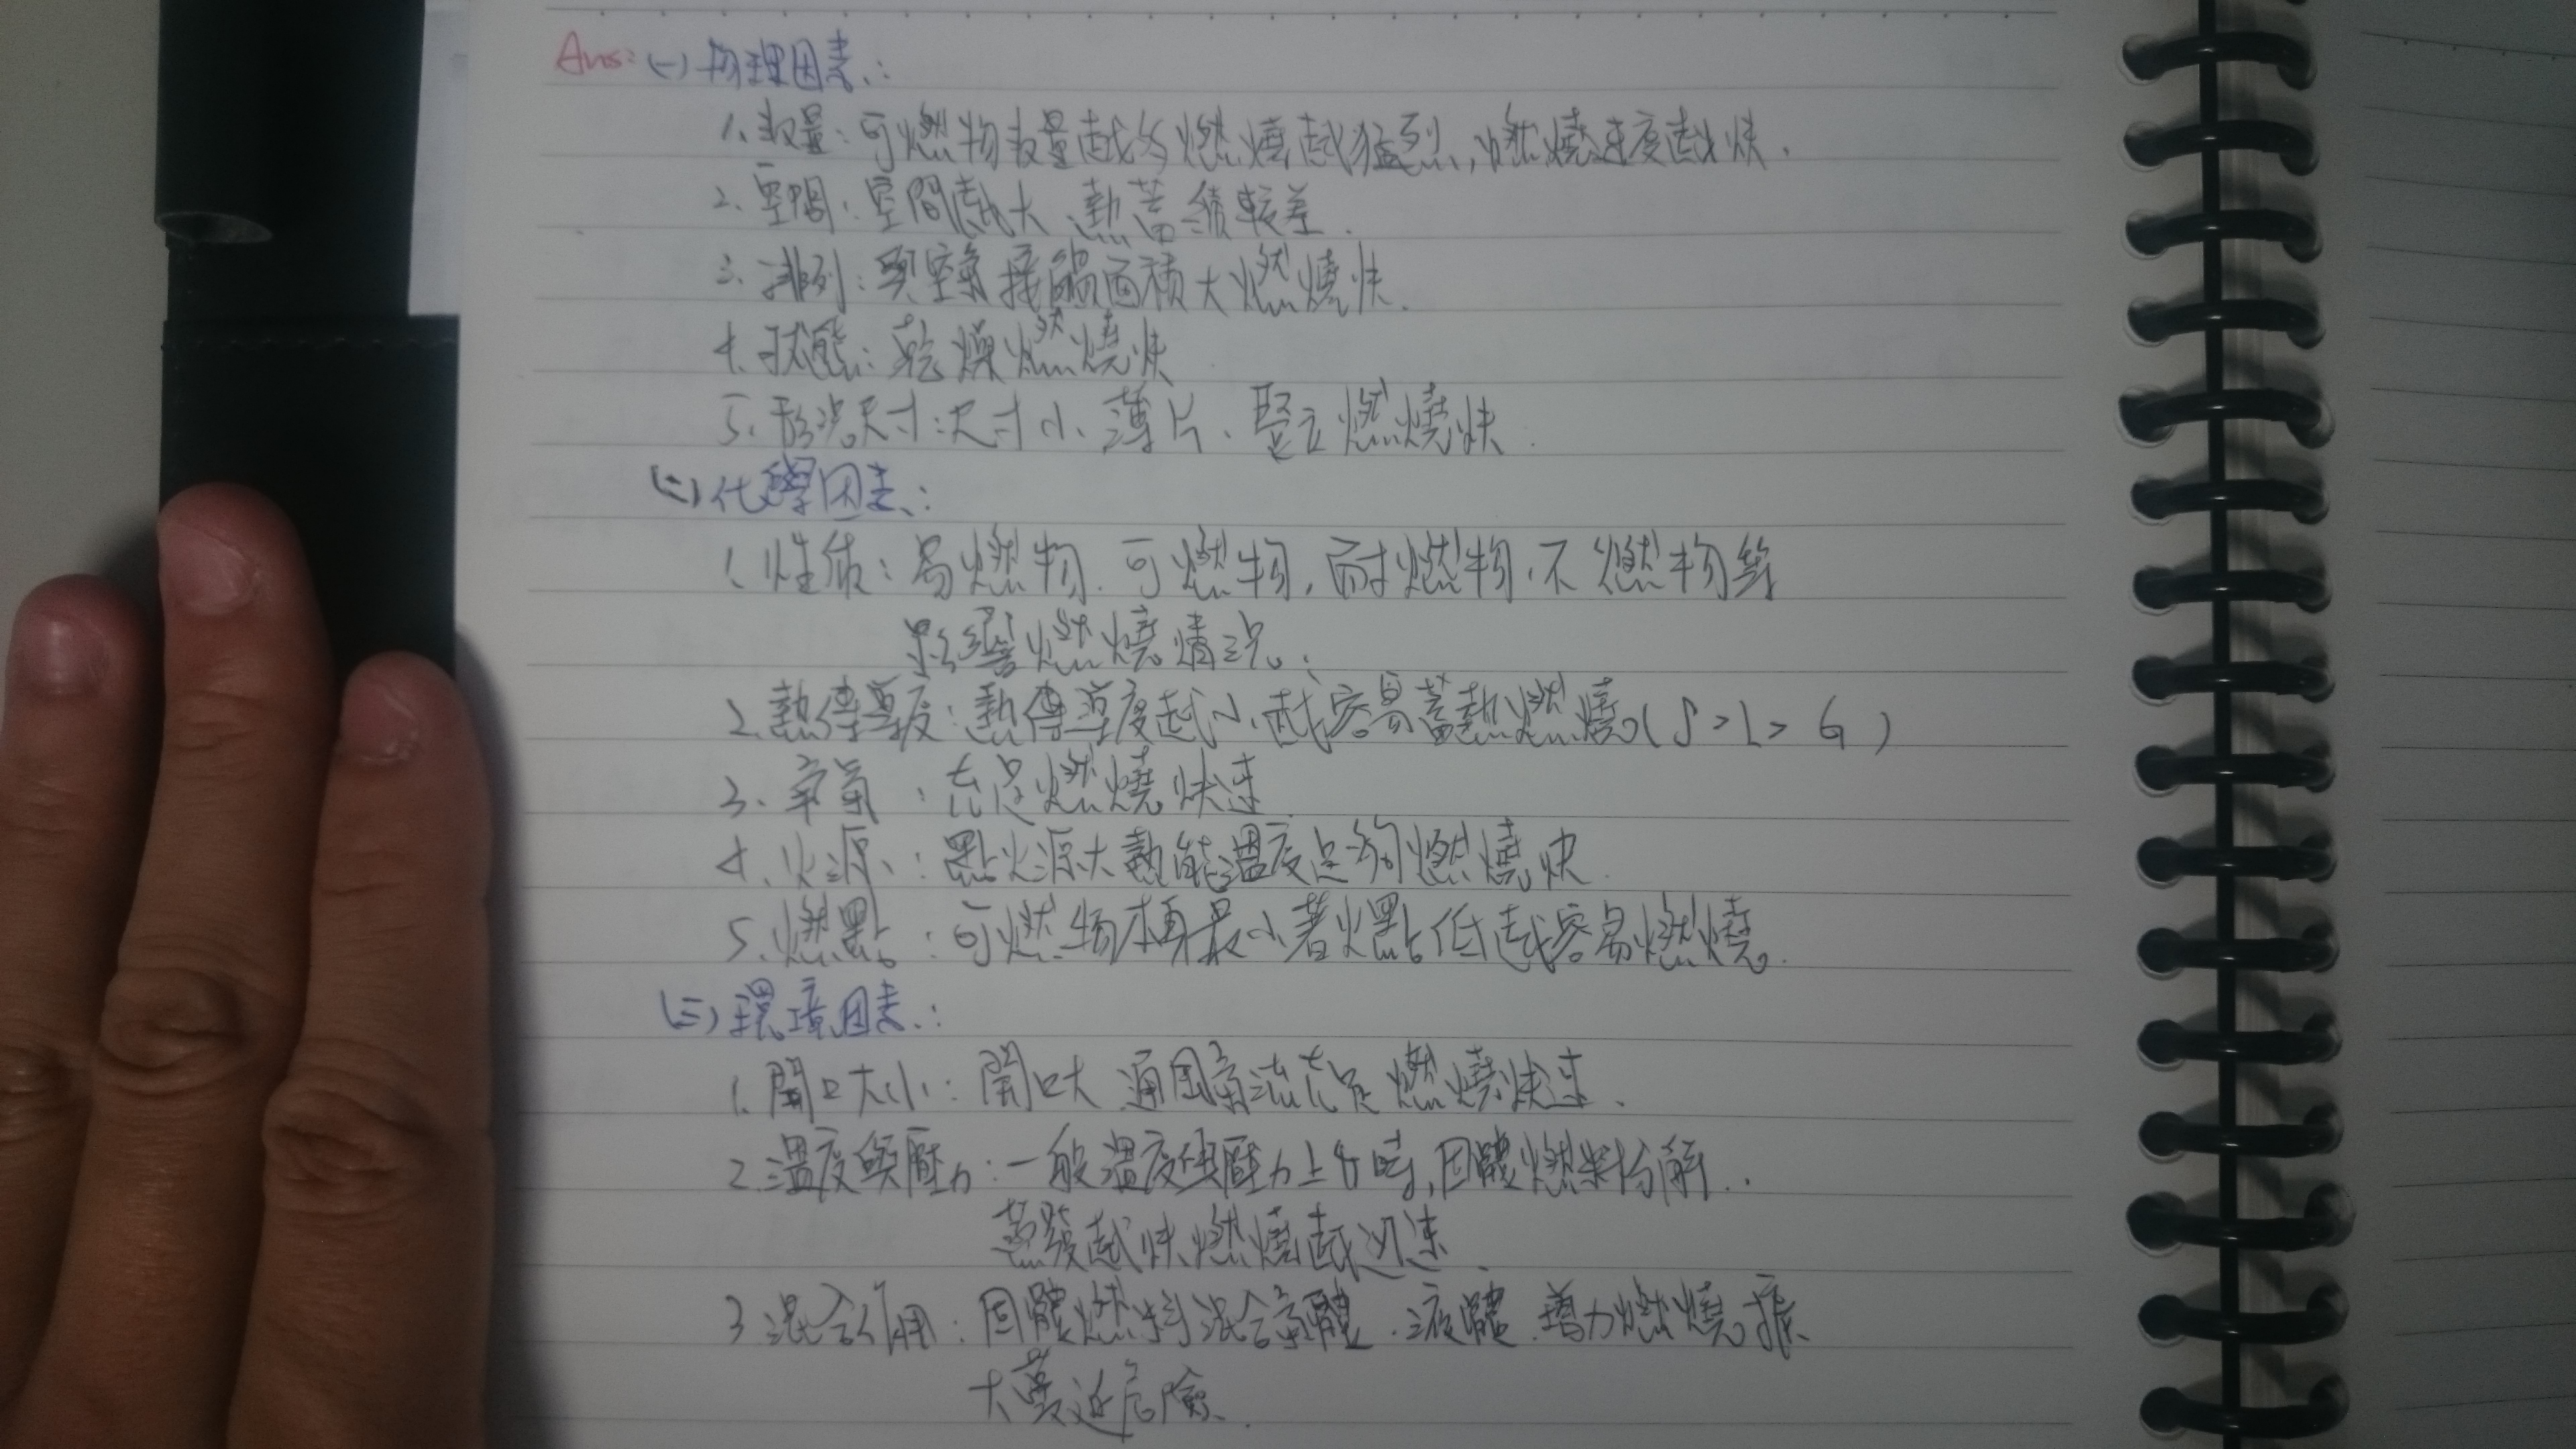 Ans: (一) 物理因素:
1. 數量: 可燃物數量越多燃燒越猛烈, 燃燒速度越快.
2. 空間: 空間越大 熱蓄積較差.
3. 排列: 與空氣接觸面積大燃燒快.
4. 狀態: 乾燥燃燒快
5. 形況尺寸: 尺寸小、薄片、豎立燃燒快.
(二) 化學因素:
1. 性質: 易燃物. 可燃物, 耐燃物, 不燃物等
影響燃燒情況.
2. 熱傳導度: 熱傳導度越小, 越容易蓄熱燃燒 (S > L > G)
3. 氧氣: 充足燃燒快速
4. 火源: 點火源大熱能溫度足夠燃燒快.
5. 燃點: 可燃物本身最小著火點低越容易燃燒.
(三) 環境因素:
1. 開口大小: 開口大 通風氣流充足 燃燒快速.
2. 溫度與壓力: 一般溫度與壓力上升時, 固體燃料分解..
蒸發越快燃燒越迅速.
3. 混合作用: 固體燃料混合氣體. 液體. 增加燃燒擴
大蔓延危險.